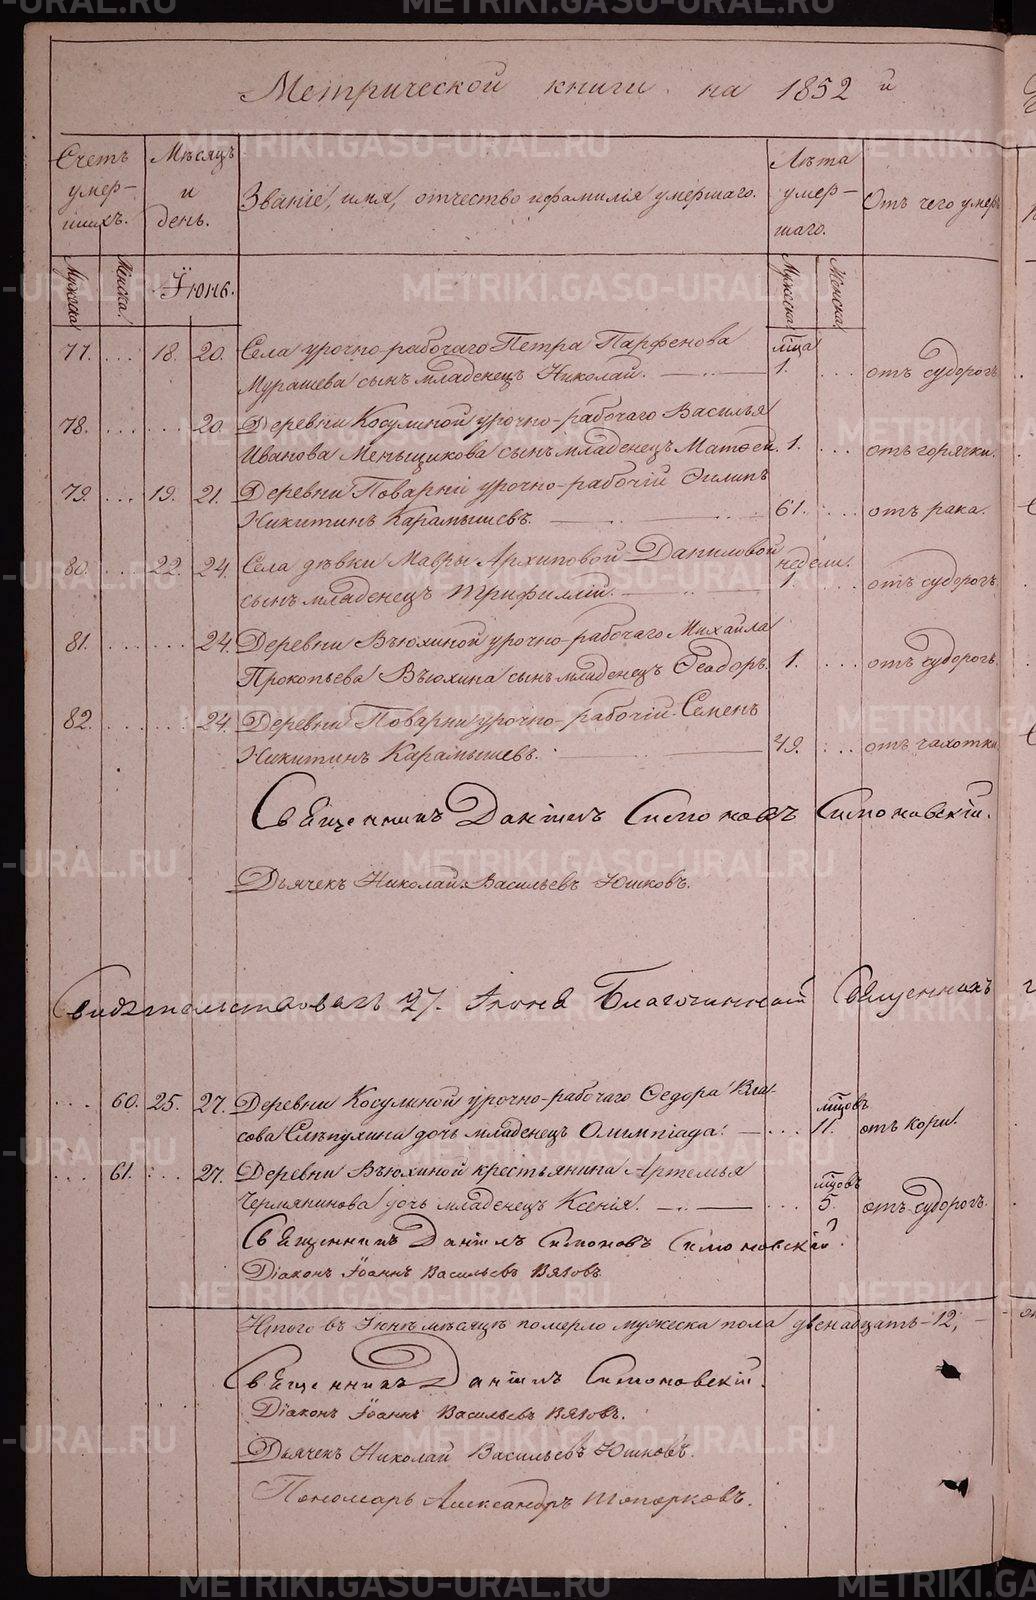 Метрической книги на 1852 й
Счетъ умершихъ.
Мѣсяцъ и день.
Званіе, имя, отчество и фамилія умершаго.
Лѣта умершаго.
Отъ чего умеръ
Мужеска
Женска
Іюнь.
Мужеска
Женска
77. ... 18. 20. Села урочно-рабочаго Петра Парфенова мца
Мурашева сынъ младенецъ Николай. 1. ... отъ судорогъ
78. ... 20. Деревни Косулиной урочно-рабочаго Василья
Иванова Меньщикова сынъ младенецъ Матѳей. 1. ... отъ горячки.
79. ... 19. 21. Деревни Поварни урочно-рабочій Филипъ
Никитинъ Карамышевъ. 61. ... отъ рака.
80. ... 22. 24. Села дѣвки Мавры Архиповой Даниловой недели.
сынъ младенецъ Трифиллій. 1. ... отъ судорогъ.
81. ... 24. Деревни Вьюхиной урочно-рабочаго Михаила
Прокопьева Вьюхина сынъ младенецъ Ѳеодоръ. 1. ... отъ судорогъ.
82. ... 24. Деревни Поварни урочно-рабочій Семенъ
Никитинъ Карамышевъ. 49. ... отъ чахотки
Священникъ Даніилъ Симоновъ Симоновскій.
Дьячекъ Николай Васильевъ Юшковъ.
Свидѣтельствовалъ 27. Іюня Благочинный Священникъ
... 60. 25. 27. Деревни Косулиной урочно-рабочаго Ѳедора Вла- мцовъ
сова Слѣпухина дочь младенецъ Олимпіада. ... 11. отъ кори.
... 61. ... 27. Деревни Вьюхиной крестьянина Артемья мцовъ
Чермянинова дочь младенецъ Ксенія. ... 5. отъ судорогъ.
Священникъ Даніилъ Симоновъ Симоновскій.
Діаконъ Іоаннъ Васильевъ Вяговъ.
Итого въ Іюнѣ мѣсяцѣ померло мужеска пола двенадцать - 12, -
Священникъ Даніилъ Симоновскій.
Діаконъ Іоаннъ Васильевъ Вяговъ.
Дьячекъ Николай Васильевъ Юшковъ.
Пономарь Александръ Топорковъ.
METRIKI.GASO-URAL.RU